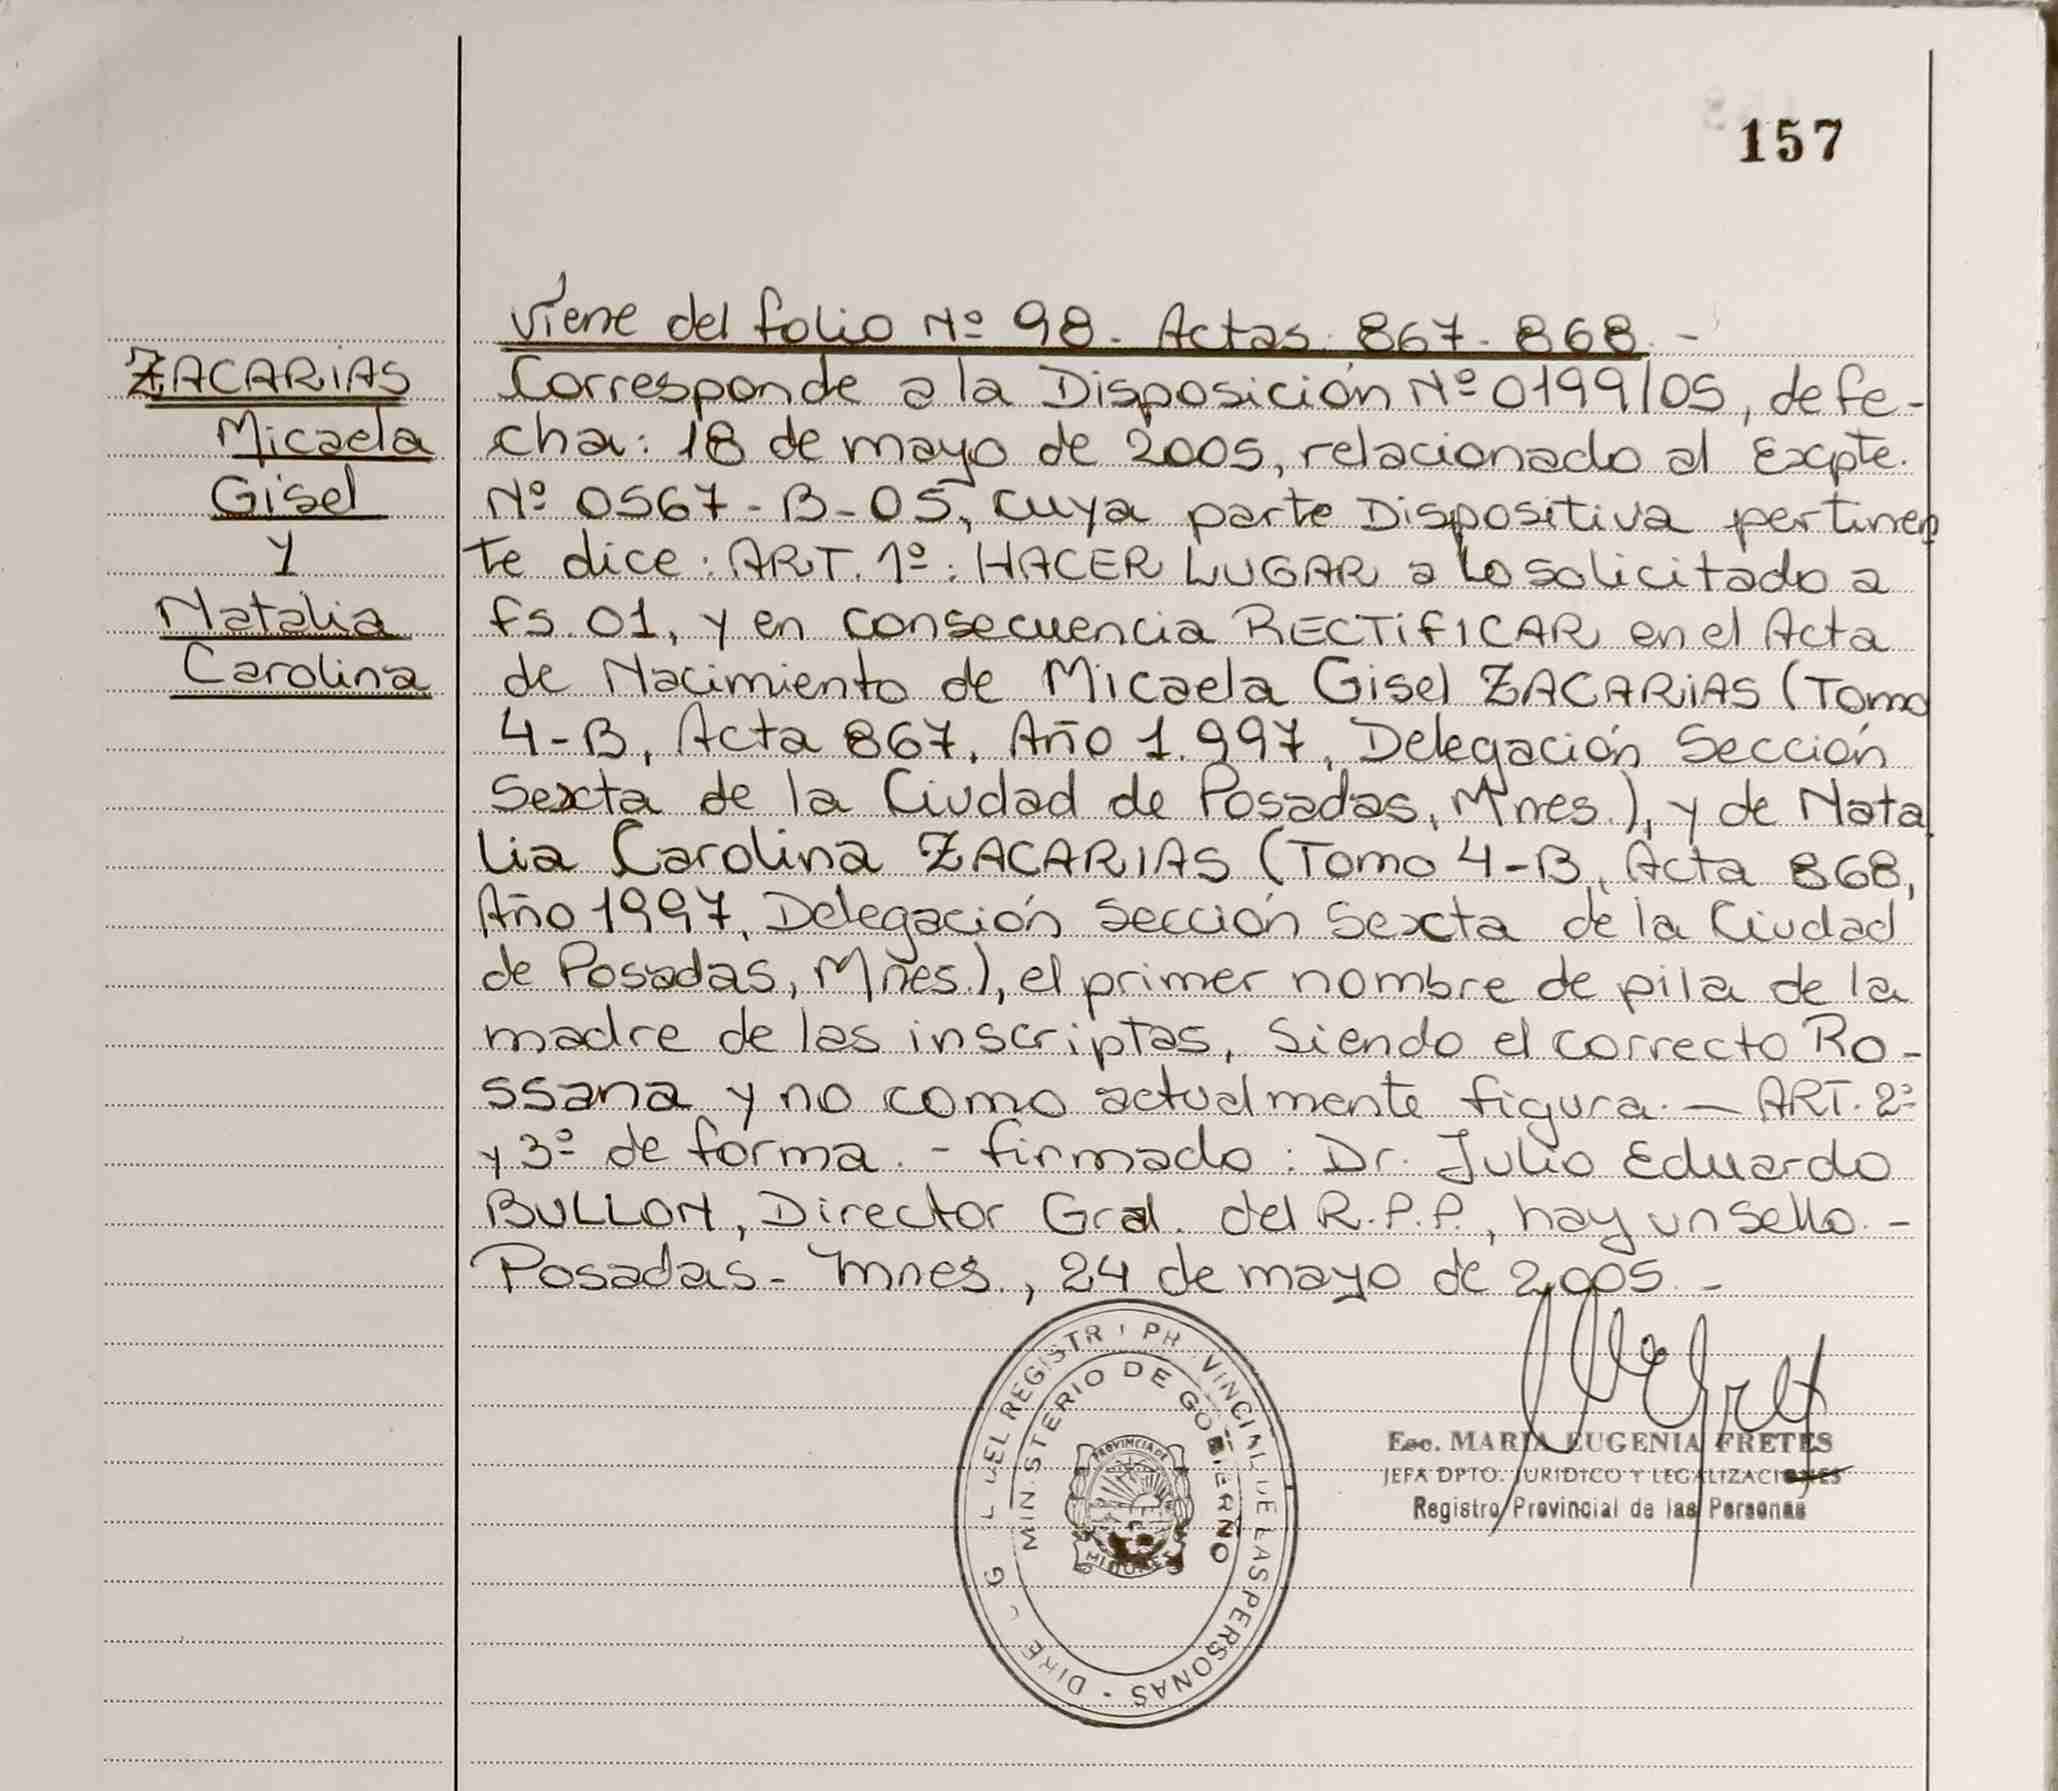 157
ZACARIAS
Micaela
Gisel
Y
Natalia
Carolina
Viene del folio Nº 98. Actas: 867-868.-
Corresponde a la Disposición Nº 0199/05, de fe-
cha: 18 de mayo de 2005, relacionado al Expte.
Nº 0567-B-05, cuya parte Dispositiva pertinen
te dice: ART. 1º: HACER LUGAR a lo solicitado a
fs. 01, y en consecuencia RECTIFICAR en el Acta
de Nacimiento de Micaela Gisel ZACARIAS (Tomo
4-B, Acta 867, Año 1.997, Delegación Sección
Sexta de la Ciudad de Posadas, Mnes.), y de Nata
lia Carolina ZACARIAS (Tomo 4-B, Acta 868,
Año 1997, Delegación Sección Sexta de la Ciudad
de Posadas, Mnes.), el primer nombre de pila de la
madre de las inscriptas, siendo el correcto Ro-
ssana y no como actualmente figura.- ART. 2º
y 3º de forma.- firmado: Dr. Julio Eduardo
BULLON, Director Gral. del R.P.P., hay un sello.-
Posadas- Mnes., 24 de mayo de 2,005.-
Esc. MARIA EUGENIA FRETES
JEFA DPTO. JURIDICO Y LEGALIZACIONES
Registro Provincial de las Personas
DEL REGISTR PR VINCIAL DE LAS PERSONAS
MINISTERIO DE GOBIERNO
PROVINCIA DE
MISIONES